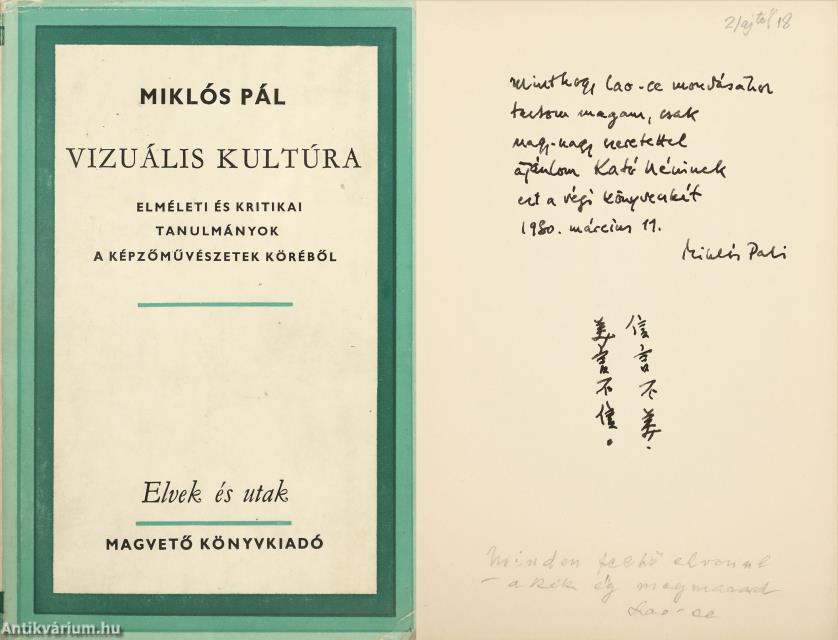 MIKLÓS PÁL
VIZUÁLIS KULTÚRA
ELMÉLETI ÉS KRITIKAI
TANULMÁNYOK
A KÉPZŐMŰVÉSZETEK KÖRÉBŐL
Elvek és utak
MAGVETŐ KÖNYVKIADÓ
Antikvárium.hu
18
minthogy Lao-ce mondásához
tartom magam, csak
nagy-nagy szeretettel
ajánlom Kató néninek
ezt a régi könyvecskét
1980. március 11.
Miklós Pali
信言不美.
美言不信。
Minden felhő elvonul
– a kék ég megmarad
Lao-ce